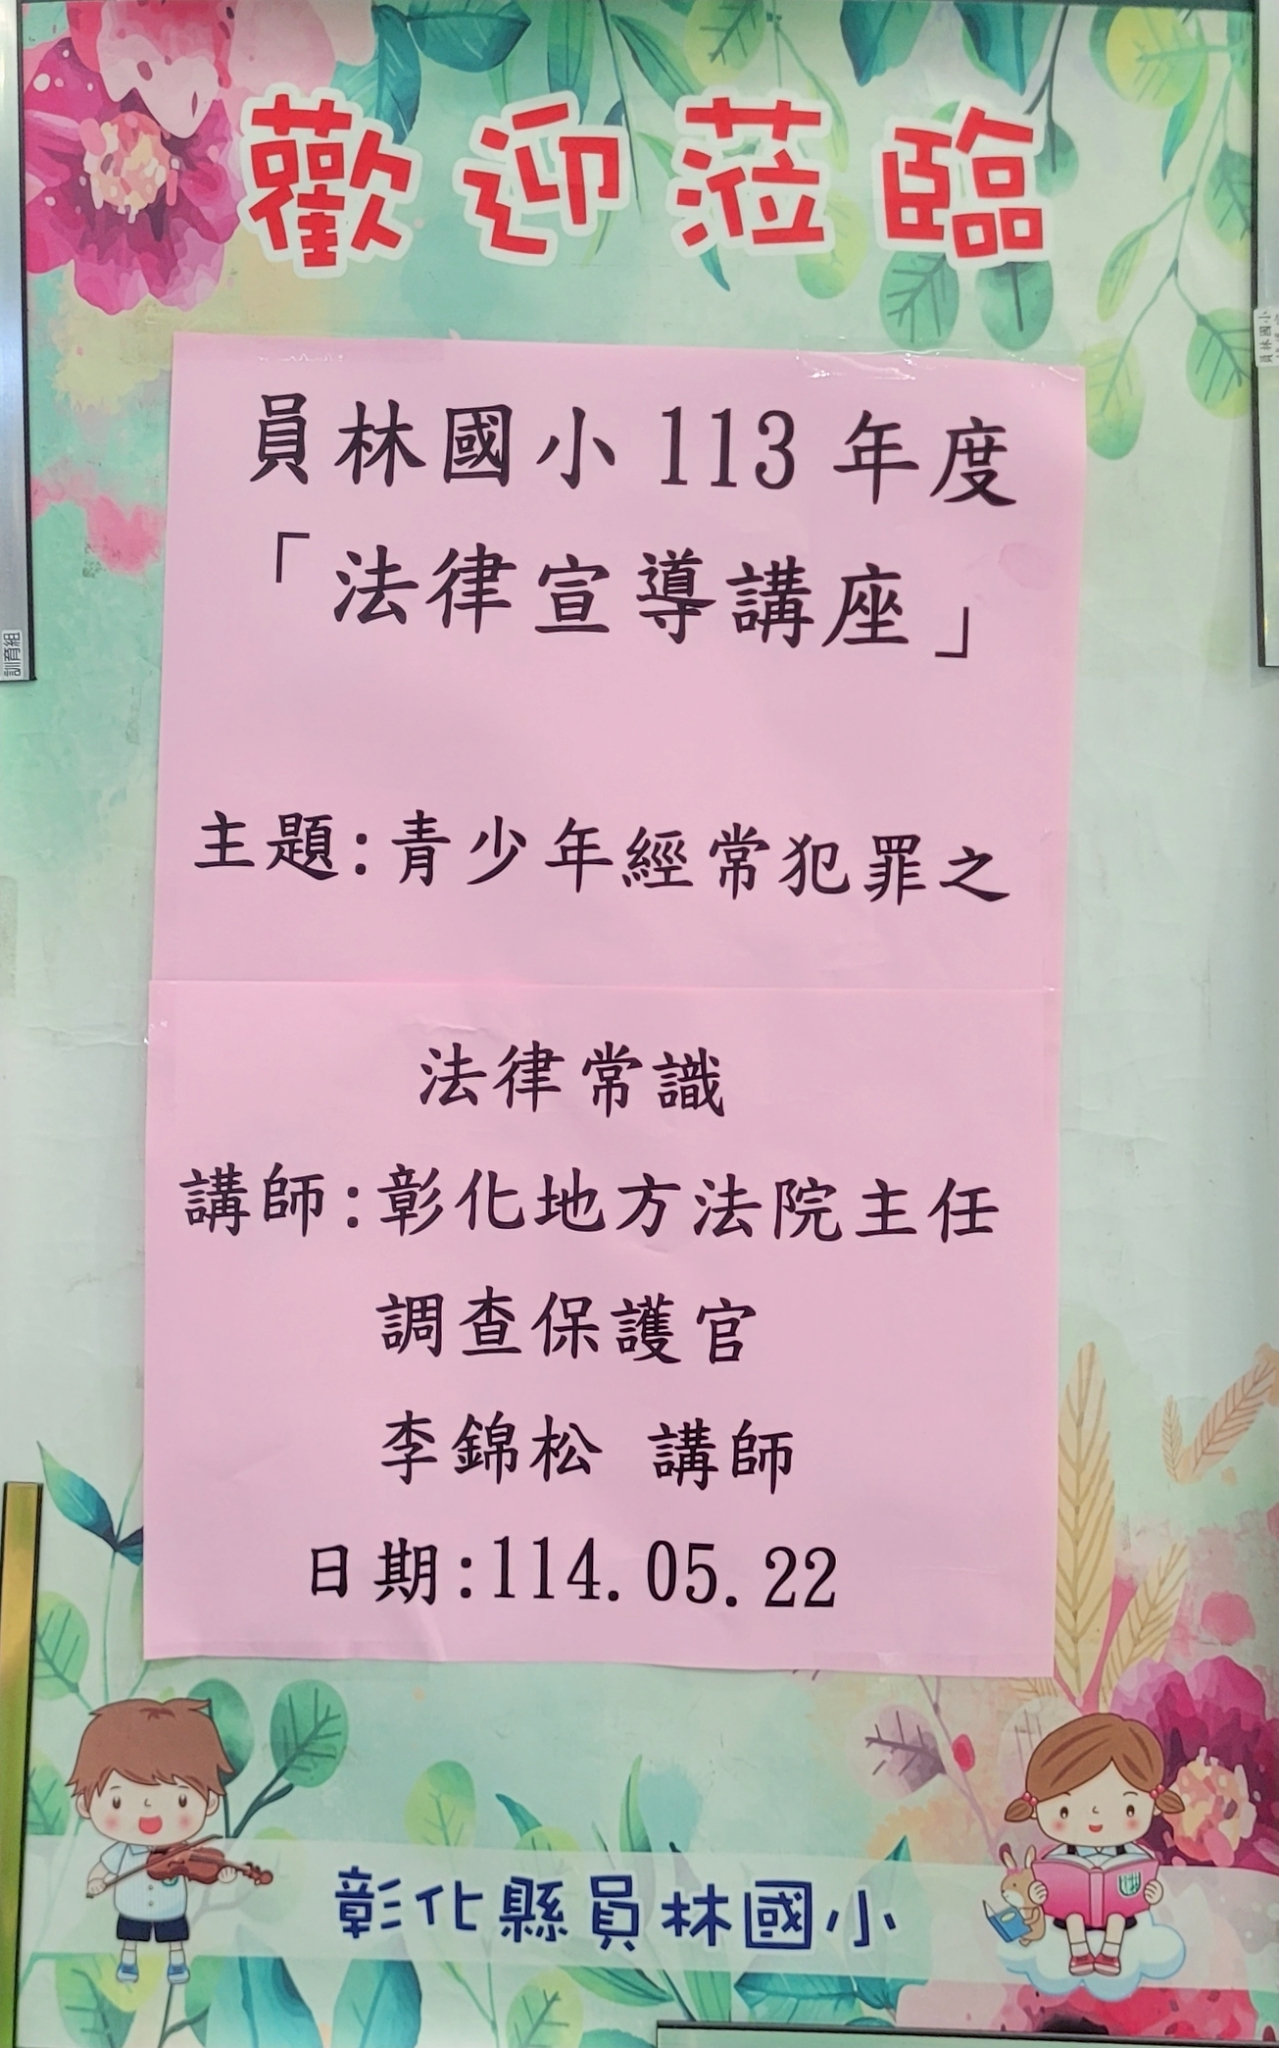 歡迎蒞臨
員林國小113年度
「法律宣導講座」
主題:青少年經常犯罪之
法律常識
講師:彰化地方法院主任
調查保護官
李錦松 講師
日期:114.05.22
彰化縣員林國小
訓育組
員林國小